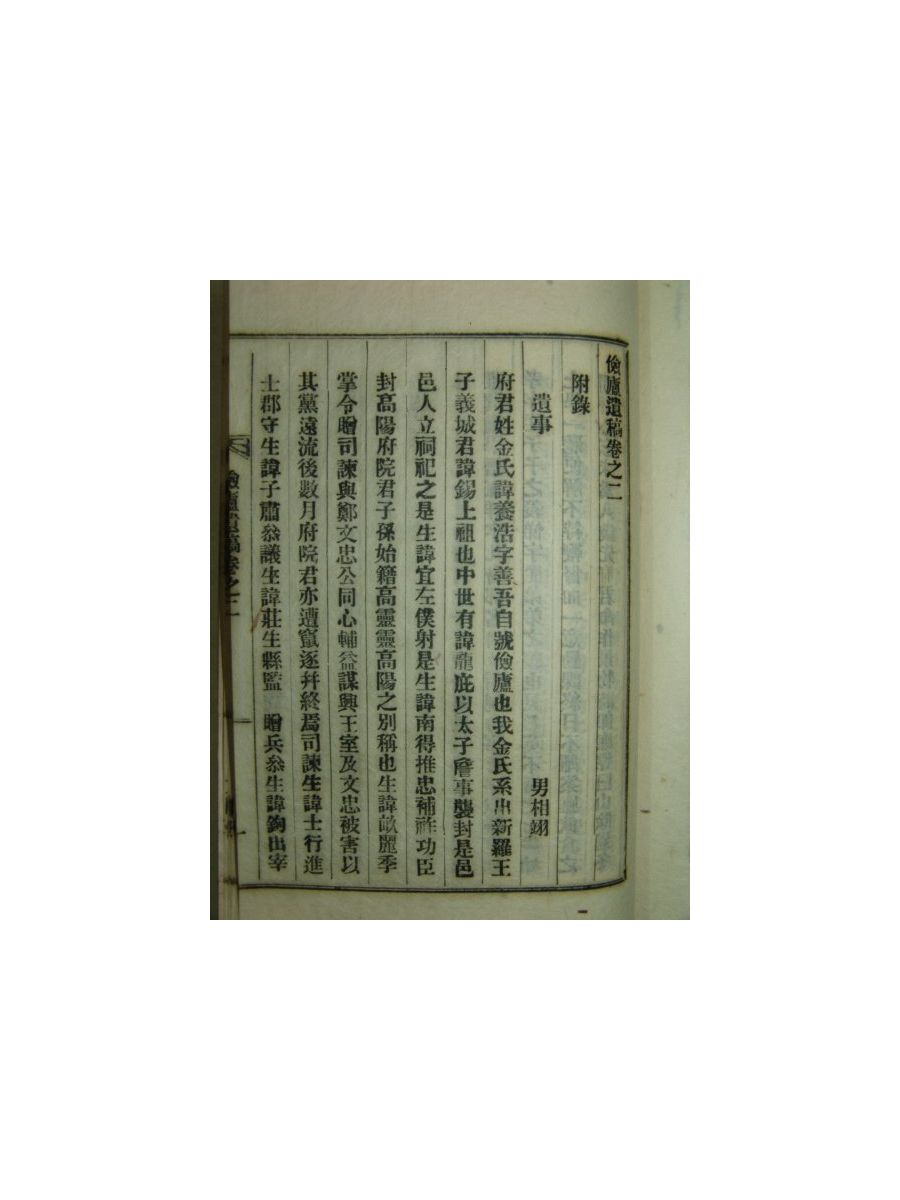 儉廬遺稿卷之二
附錄
遺事 男相翊
府君姓金氏諱養浩字善吾自號儉廬也我金氏系出新羅王
子義城君諱錫上祖也中世有諱龍庇以太子詹事襲封是邑
邑人立祠祀之是生諱宜左僕射是生諱南得推忠補祚功臣
封高陽府院君子孫始籍高靈靈高陽之別稱也生諱畝麗季
掌令贈司諫與鄭文忠公同心輔益謀興王室及文忠被害以
其黨遠流後數月府院君亦遭竄逐幷終焉司諫生諱士行進
士郡守生諱子肅叅議生諱莊生縣監 贈兵叅生諱鉤出宰
儉廬遺稿卷之二
一